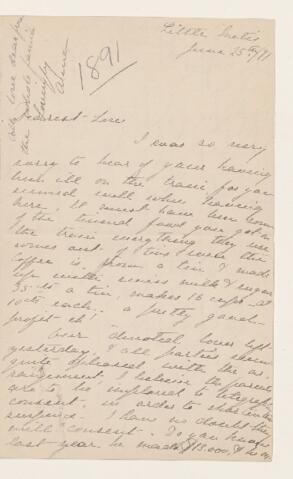 Little Metis
June 25th/91
1891
With love dear from
the whole family
Lovingly
Dearest
I was so very
sorry to hear of your having
been ill on the train for you
seemed well when leaving
here. It must have been some
of the tinned food you got on
the train everything they use
comes out of tins even the
coffee is from a tin & made
up with milk & sugar
35 cts a tin, makes 16 cups at
10cts each. a pretty good
profit eh!
Our devoted lover left
yesterday & all parties seem
quite pleased with the ar-
rangement. I believe the parents
are to be implored to telegraph
consent in order to shorten the
suspense. I have no doubt they
will consent. Do you know
last year he made $13.000, & he